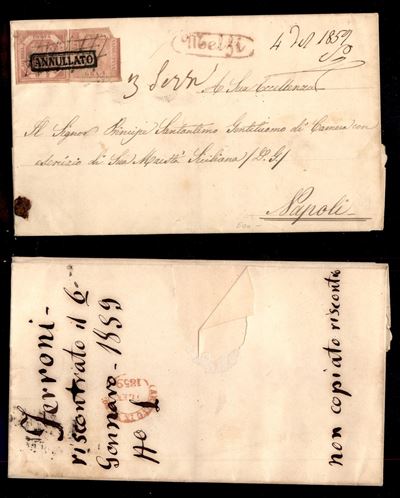 ANNULLATO
Melfi
4 1859
A Sua Eccellenza
Il Signor Principe Santantimo Gentiluomo di Camera con
servizio di Sua Maestà Siciliana
Napoli
Ferroni-
riscontrato il 6-
Gennaro-1859
non copiato riscontro
1859